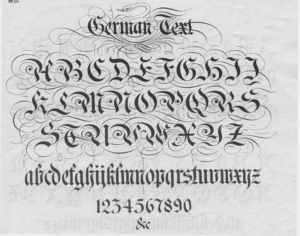 German Text
ABCDEFGHIJ
KLMNOPQRS
TUVWXYZ
abcdefghijklmnopqrstuvwxyz
1234567890
&c